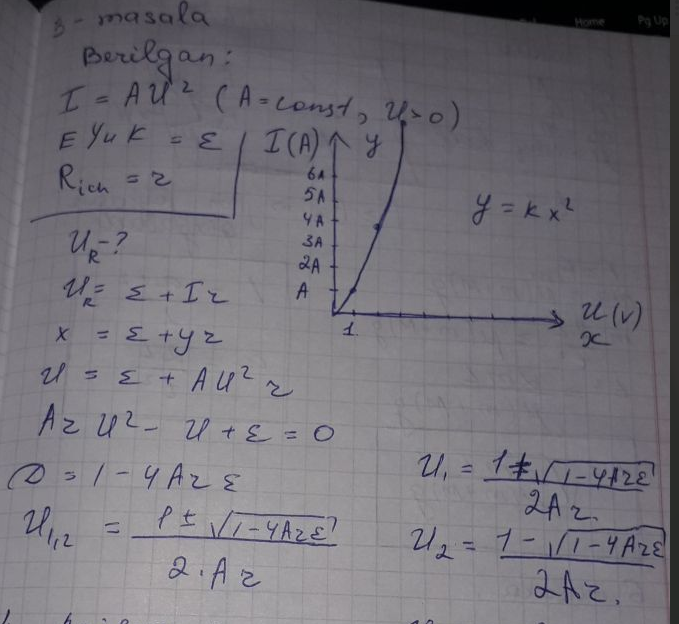 3 - masala
Berilgan:
I = AU² (A=const, U>0)
E Yu K = ε
R_ich = r
U_R - ?
U_R = ε + Ir
x = ε + yr
U = ε + AU² r
Ar U² - U + ε = 0
D = 1 - 4Arε
U₁,₂ = (1 ± √(1-4Arε)) / (2·Ar)
I(A) y
6A
5A
4A
3A
2A
A
1
U(v)
x
y = kx²
U₁ = (1 + √(1-4Arε)) / (2Ar)
U₂ = (1 - √(1-4Arε)) / (2Ar)
Home
Pg Up